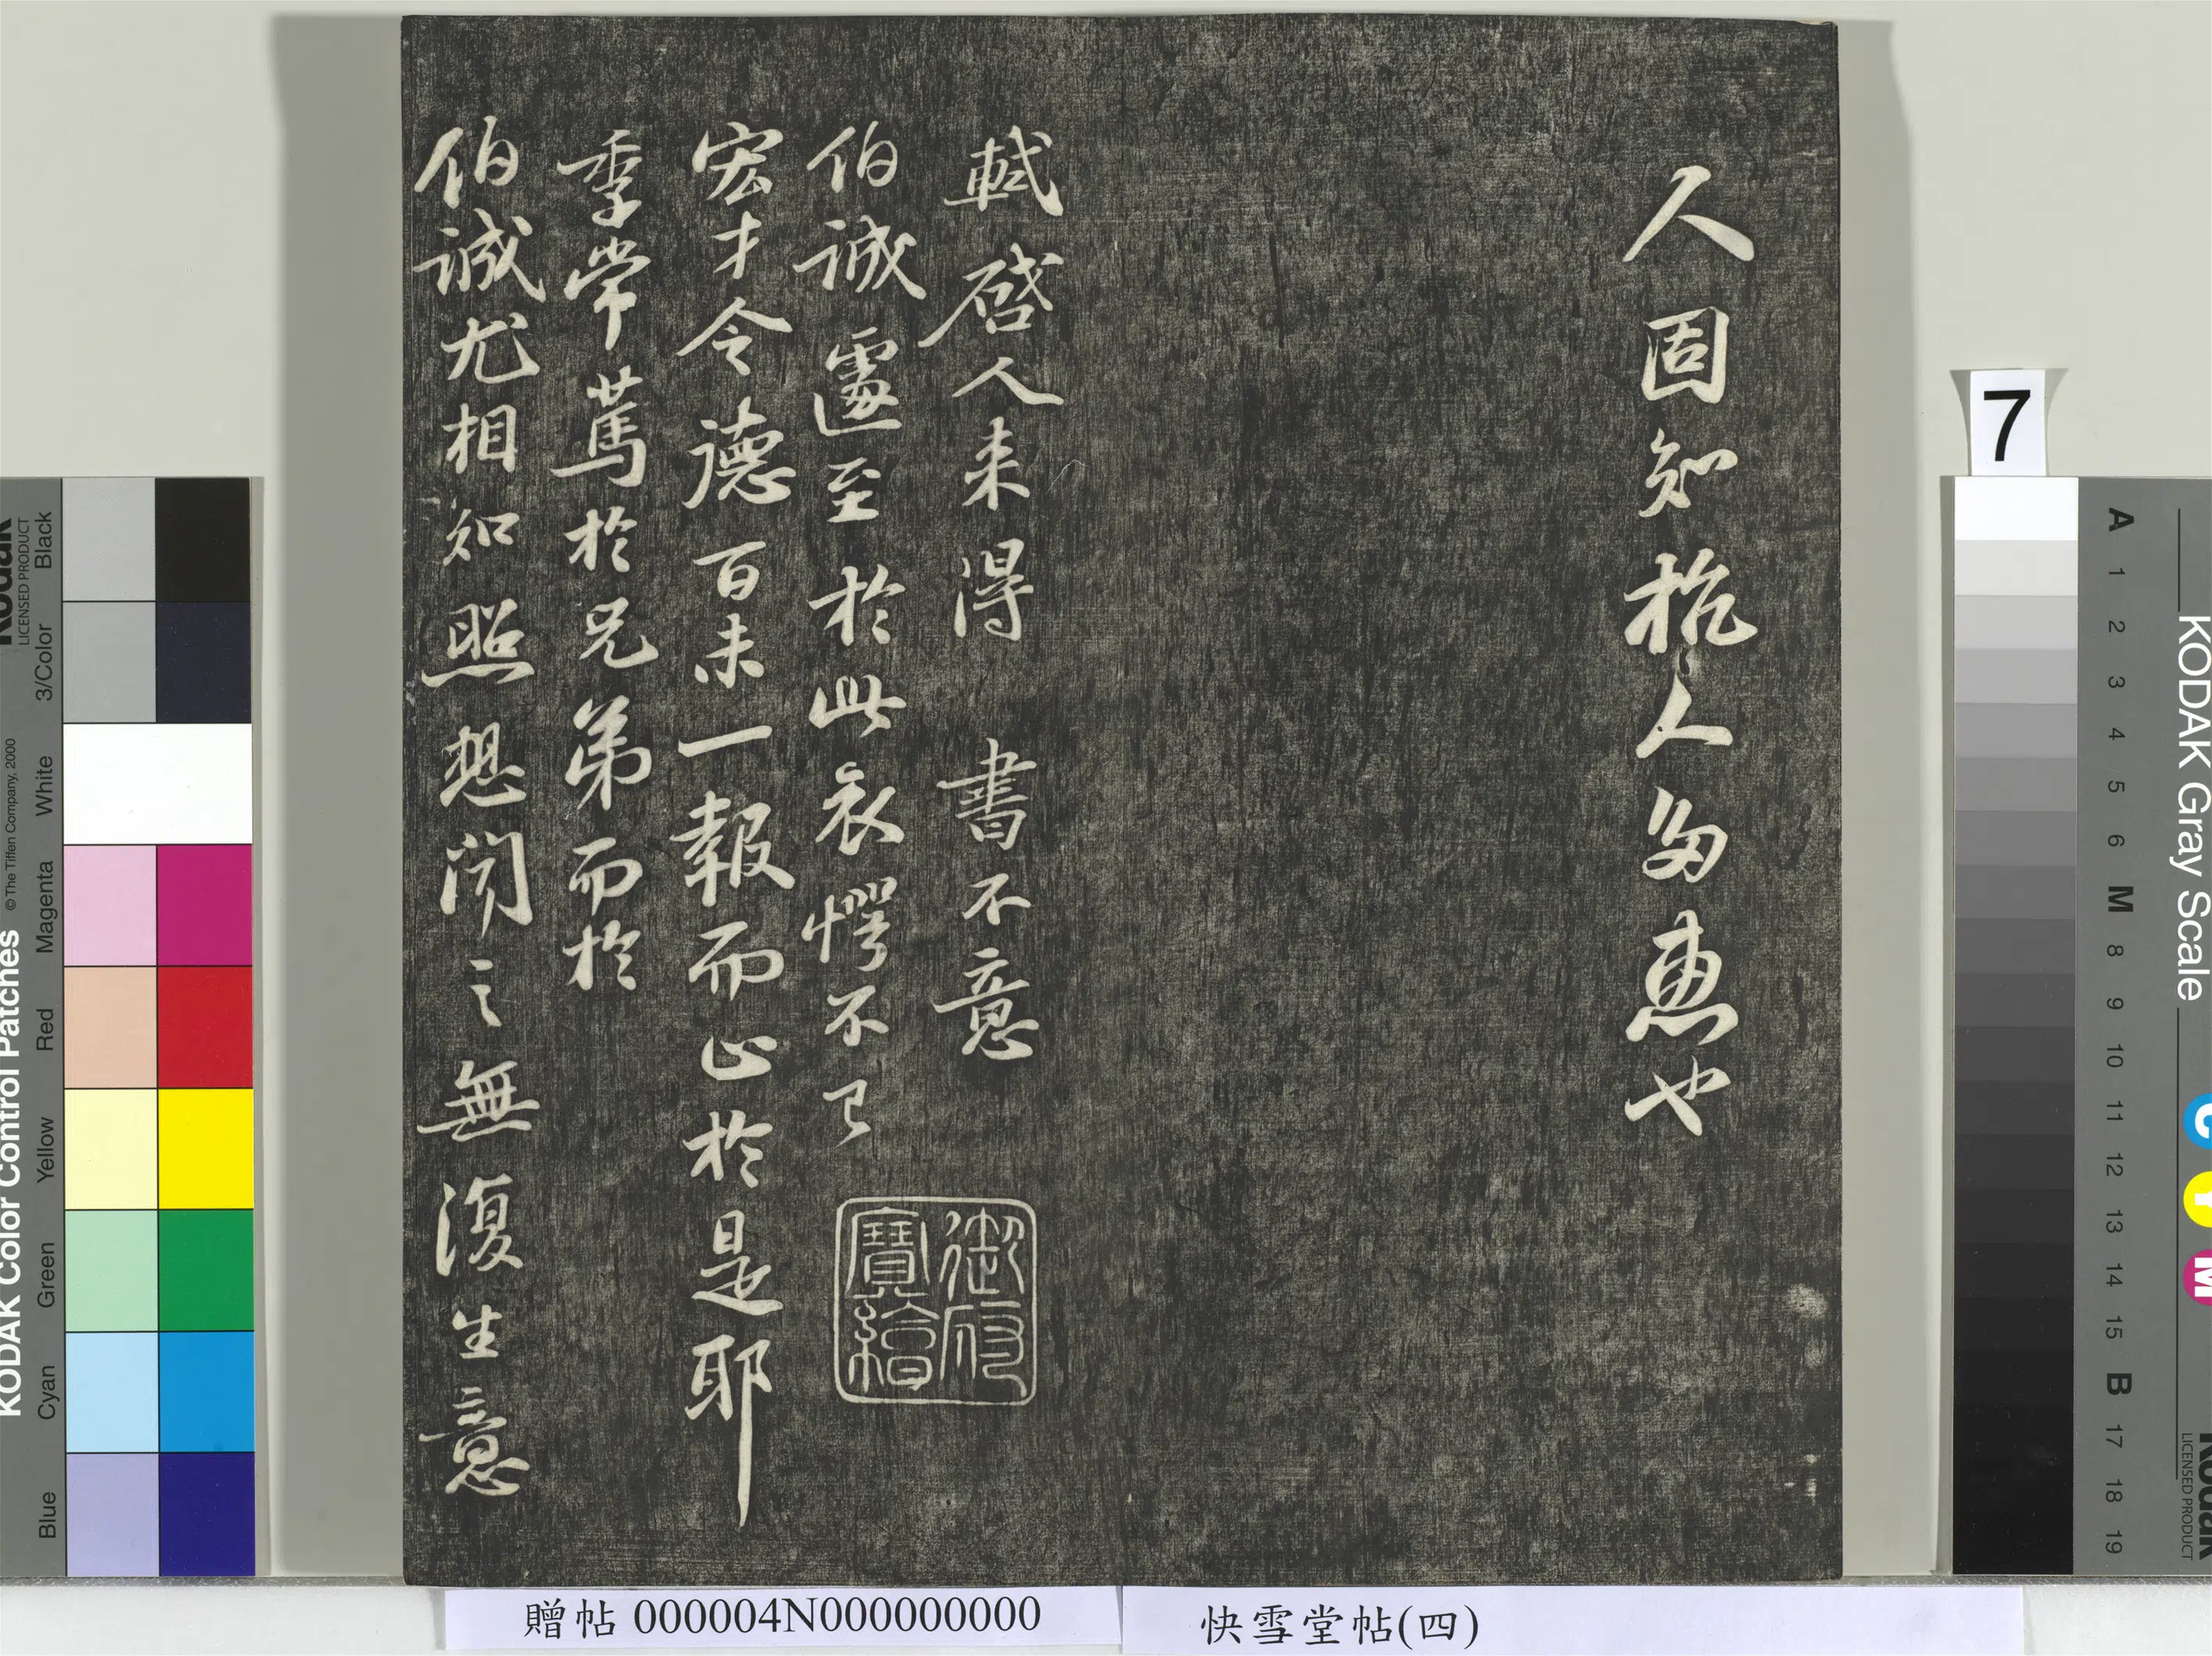 人固知杭人多惠也
軾啓人来得書不意
伯誠遽至於此哀愕不已
宏才令德百未一報而止於是耶
季常篤於兄弟而於
伯誠尤相知照想聞之無復生意
御府寶繪
贈帖 000004N000000000
快雪堂帖(四)
7
KODAK Color Control Patches © The Tiffen Company, 2000
Kodak
LICENSED PRODUCT
Blue Cyan Green Yellow Red Magenta White 3/Color Black
KODAK Gray Scale
C Y M
Kodak
LICENSED PRODUCT
A 1 2 3 4 5 6 M 8 9 10 11 12 13 14 15 B 17 18 19